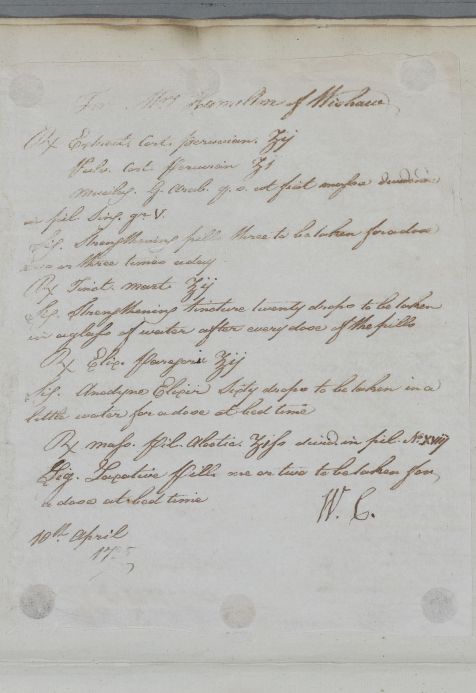 For Mrs Hamilton of Wishaw
Rx Extract. Cort. peruvian. ʒij
Pulv. Cort. Peruvian ʒi
Mucilag. G. Arab. q. s. ut fiat massa dividend
in pil. Sing. gr V.
Sig. Strengthening pills three to be taken for a dose
two or three times a day
Rx Tinct. mart. ʒij
Sig. Strengthening tincture twenty drops to be taken
in a glass of water after every dose of the pills
Rx Elix. Paregoric ʒij
Sig. Anodyne Elixir Sixty drops to be taken in a
little water for a dose at bed time
Rx mass. Pil. Aloetic. ʒiss divid in pil. No XVIIJ
Sig. Laxative Pills one or two to be taken for
a dose at bed time
W. C.
10th April